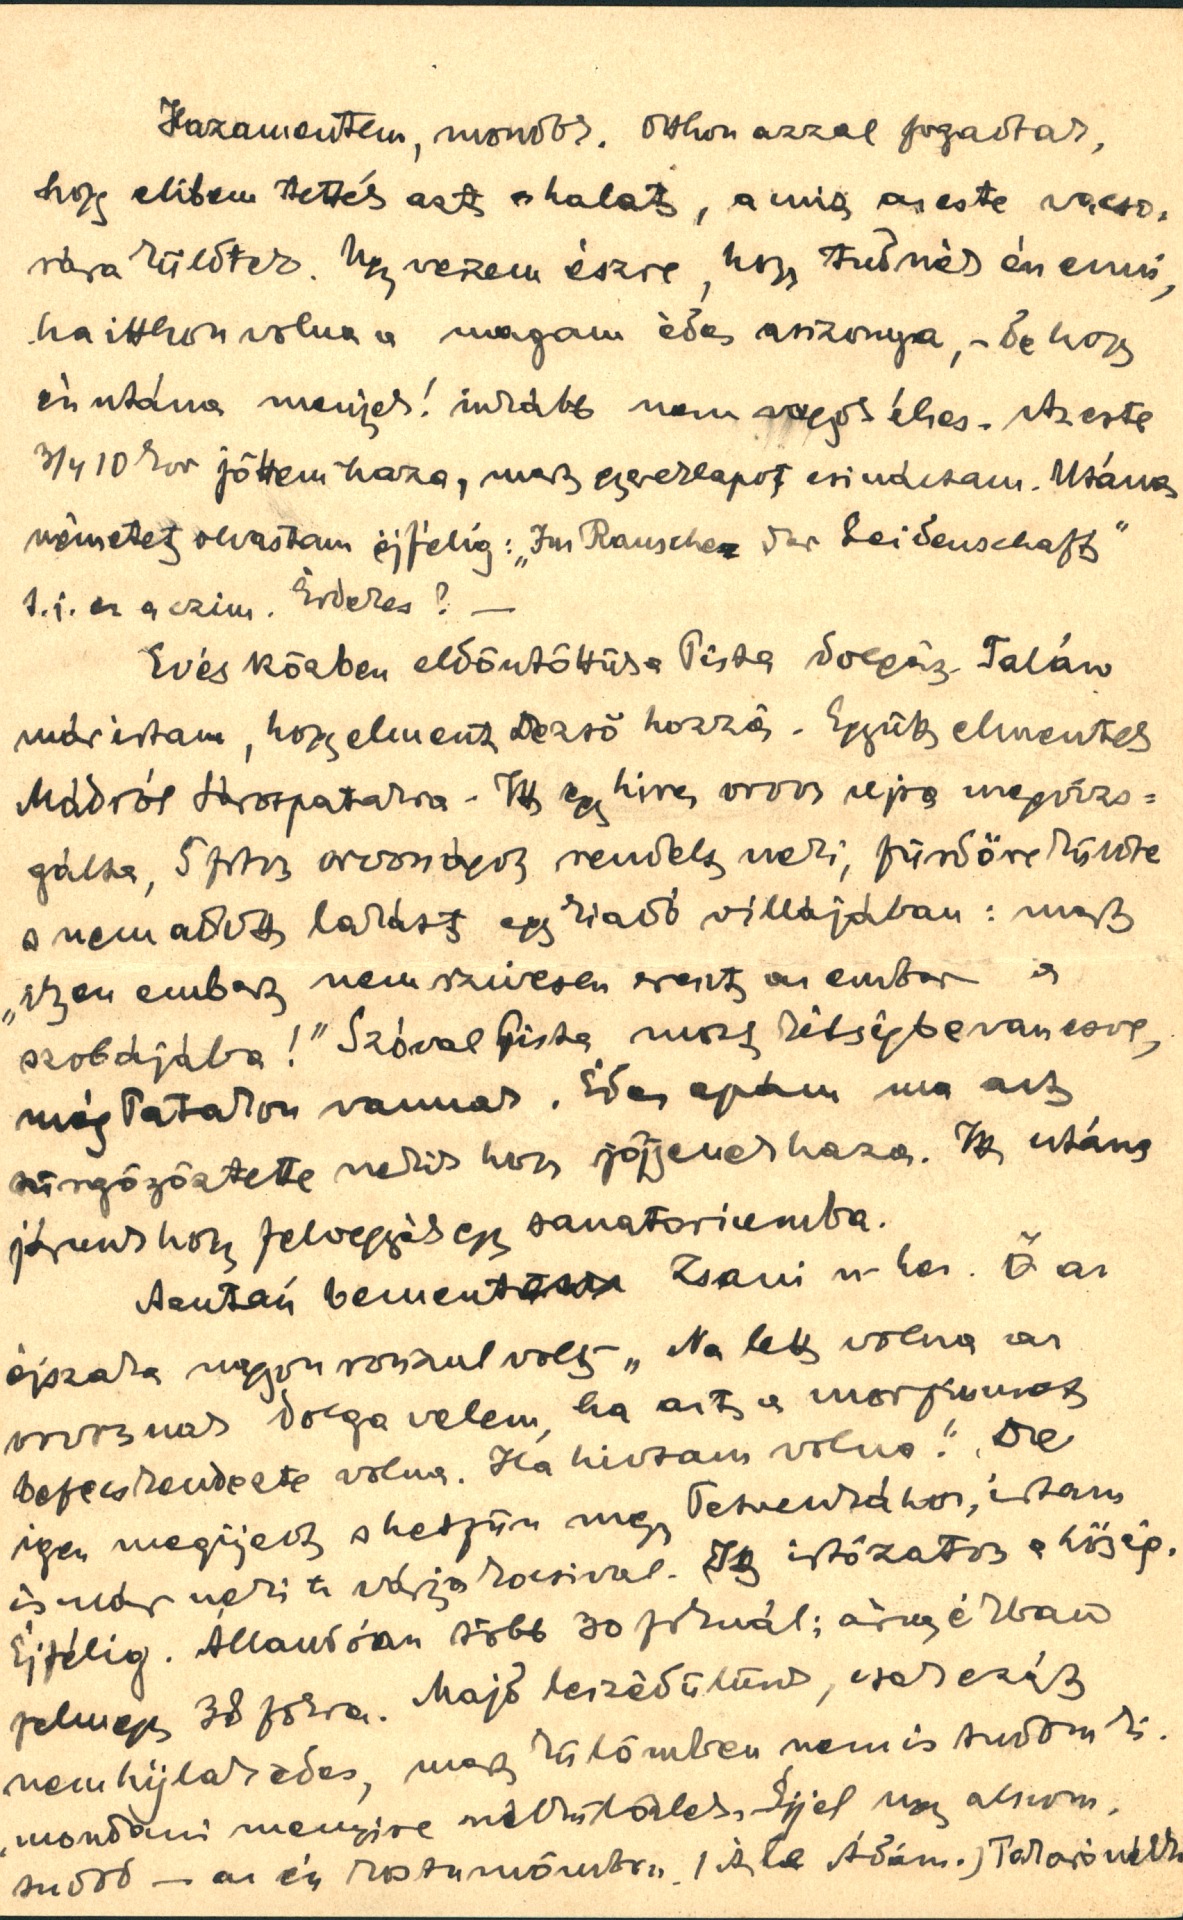 Hazamentem, mondok. Otthon azzal fogadtak,
hogy elibem tették azt a halat, a mit az este vacso-
rára küldtek. Ugy veszem észre, hogy tudnék én enni,
ha itthon volna a magam édes asszonya, - de hogy
én utána menjek! inkább nem vagyok éhes. Az este
3/4 10 kor jöttem haza, mert egyveleget csináltam. Utána
németet olvastam éjfélig: „Im Rausche der Leidenschaft"
t. i. ez a czim. Érdekes? —
Evés közben eldöntöttük a Pista dolgát. Talán
már irtam, hogy elment Dezső hozzá. Együtt elmentek
Mádról Sárospatakra. Itt egy hires orvos ujra megvizs=
gálta, 5 frtos orvosságot rendelt neki, fürdőre küldte
s nem adott lakást egy kiadó villájában: mert
„ilyen embert nem szivesen ereszt az ember a
szobájába!" Szóval Pista most kétségbe van esve,
még Patakon vannak. Édes apám ma azt
sürgönyöztette nekik hogy jöjjenek haza. Itt utána
járunk hogy felvegyék egy sanatoriumba.
Azután bement Zsani n-hez. Ő az
éjszaka nagyon rosszul volt „Na lett volna az
orvosnak dolga velem, ha azt a morfiumot
befecskendezte volna. Ha hivtam volna". De
igen megijedt s hétfün megy irtam
és már neki is várja kocsival. Itt irtózatos a hőség.
Éjfélig. Állandóan több 30 foknál; árnyékban
felmegy 38 fokra. Majd leszédülünk, csak ezért
nem hijlak édes, mert különben nem is tudom ki-
mondani mennyire nélkülözlek. Éjjel ugy alszom,
tudod — az én kosztümömben. (Á la Ádám.) Takaró nélkül